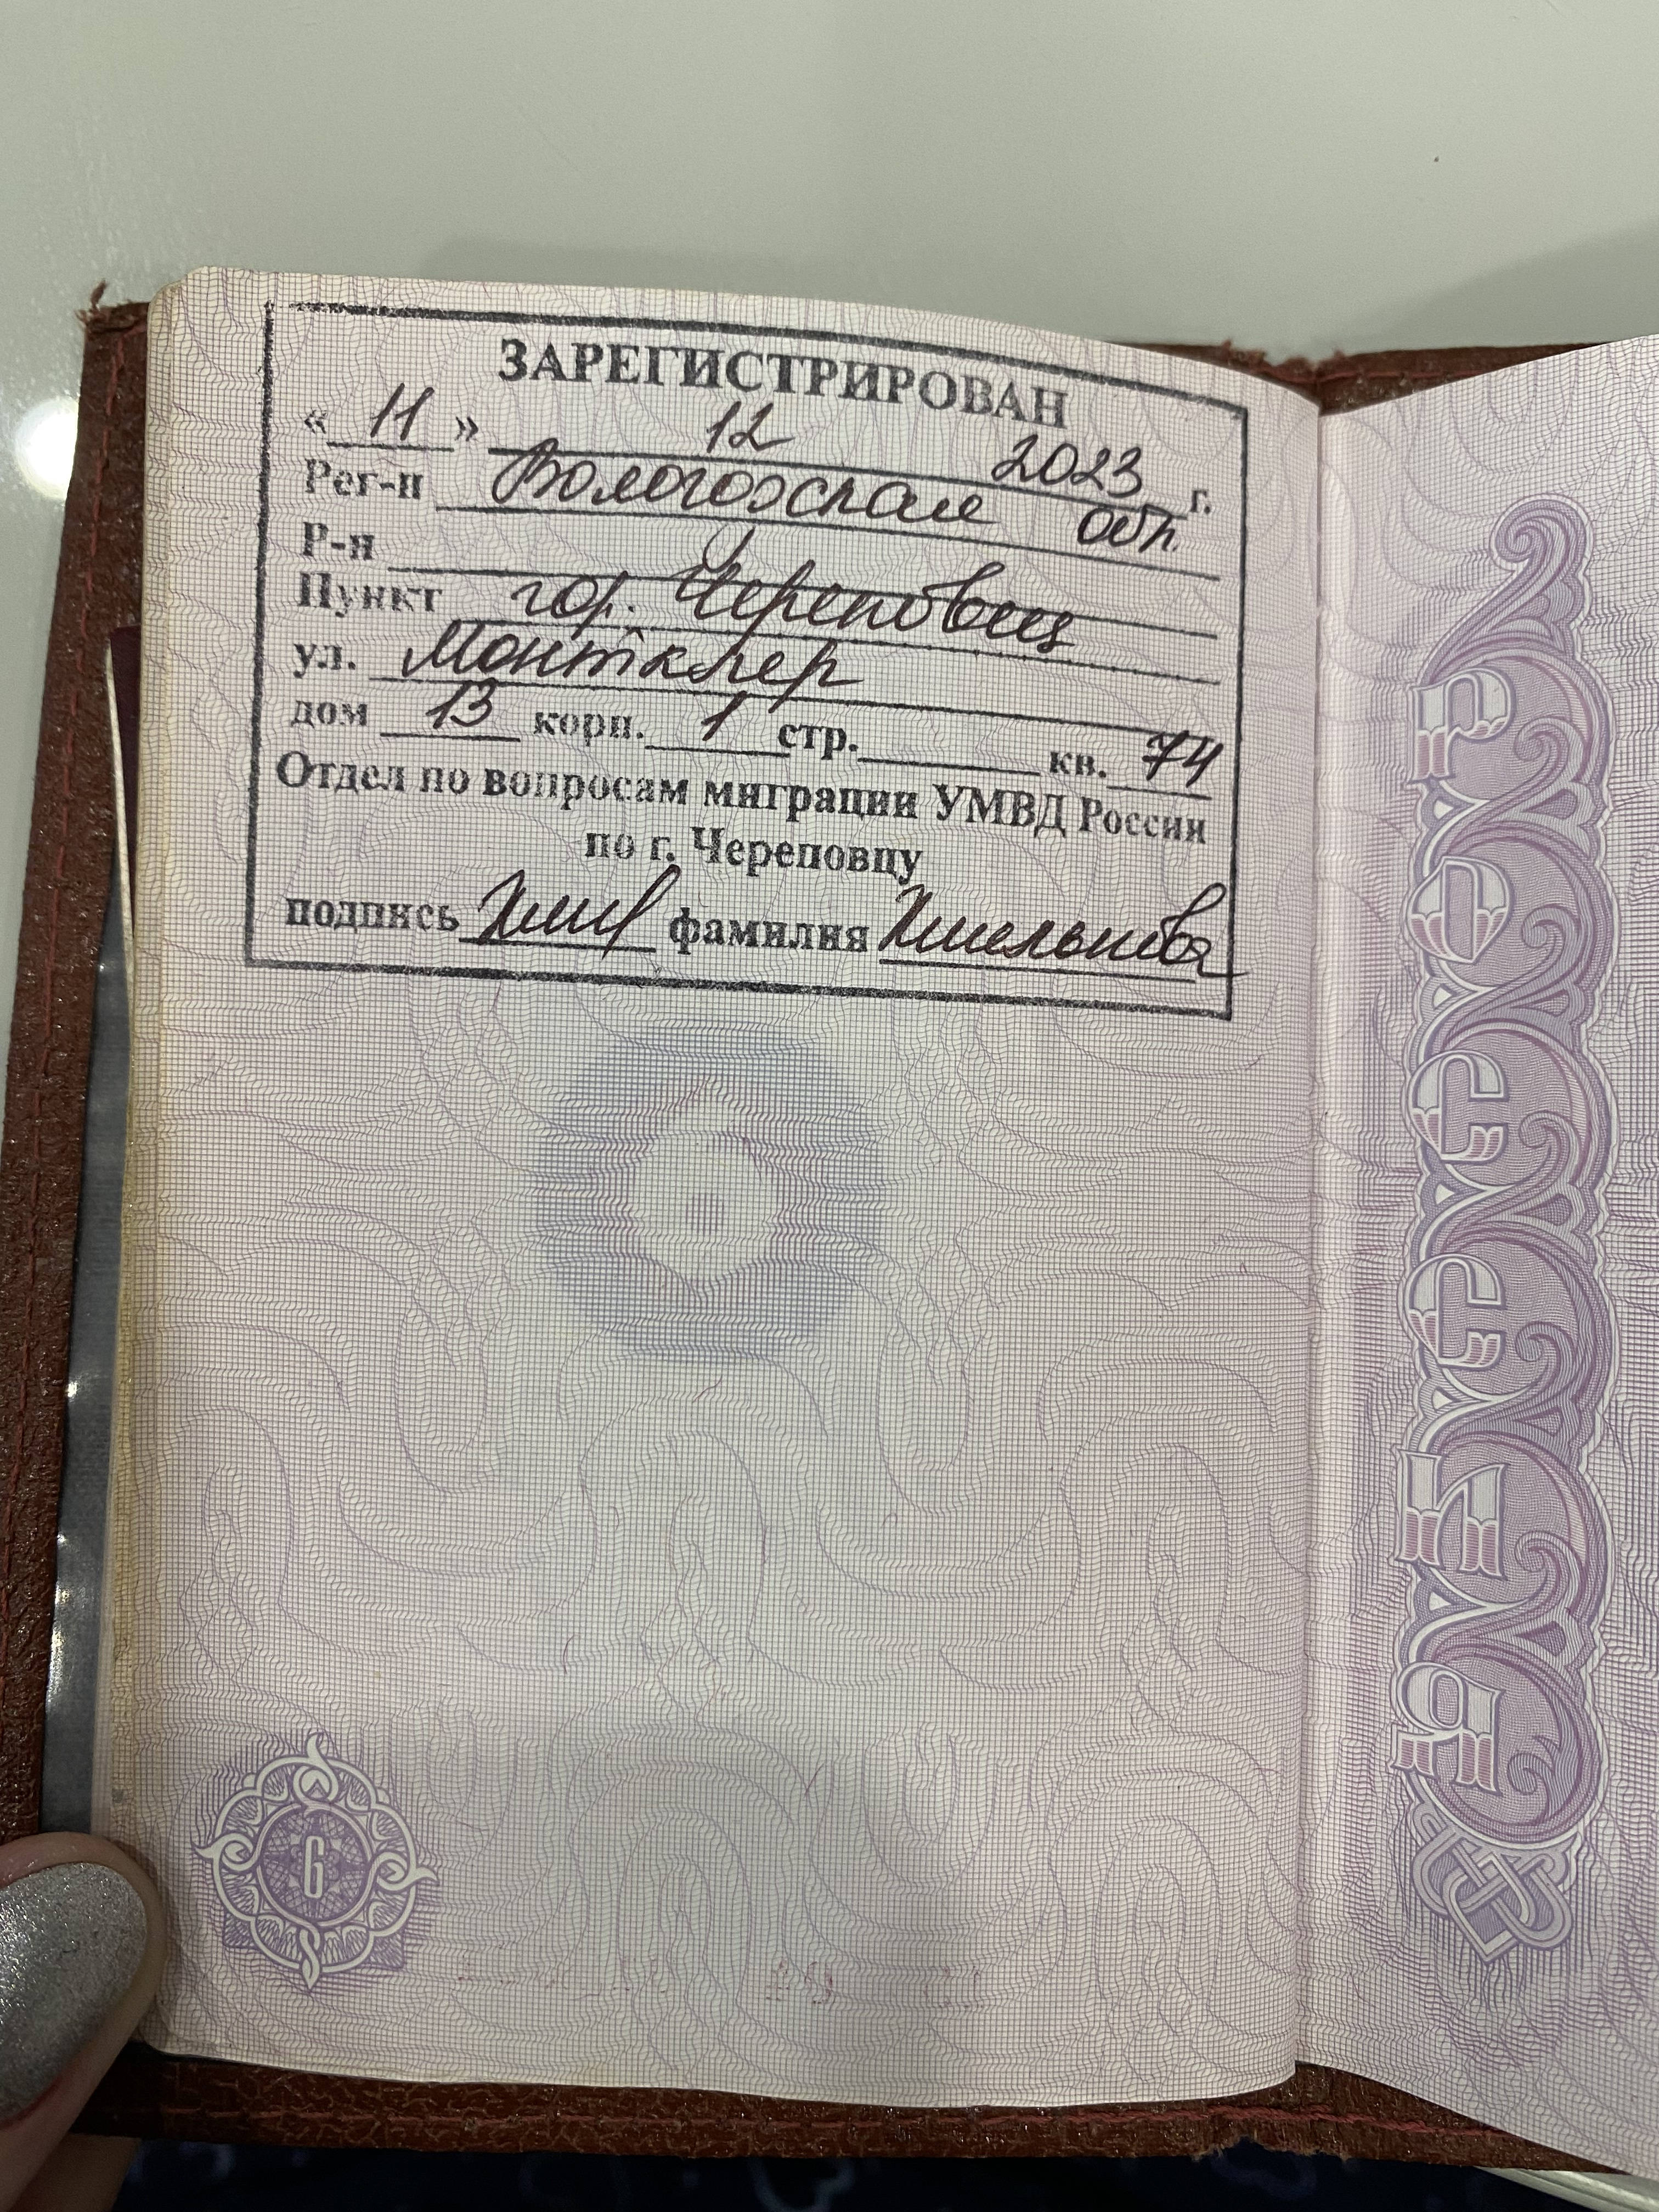 ЗАРЕГИСТРИРОВАН
« 11 » 12 2023 г.
Рег-н Вологодская обл.
Р-н
Пункт гор. Череповец
ул. Монтклер
дом 13 корп. 1 стр. кв. 74
Отдел по вопросам миграции УМВД России
по г. Череповцу
подпись фамилия
6
РОССИЯ